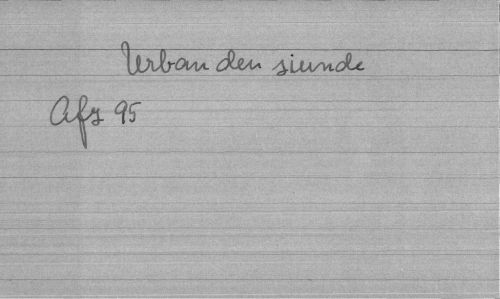 Urban den siunde
Afz 95